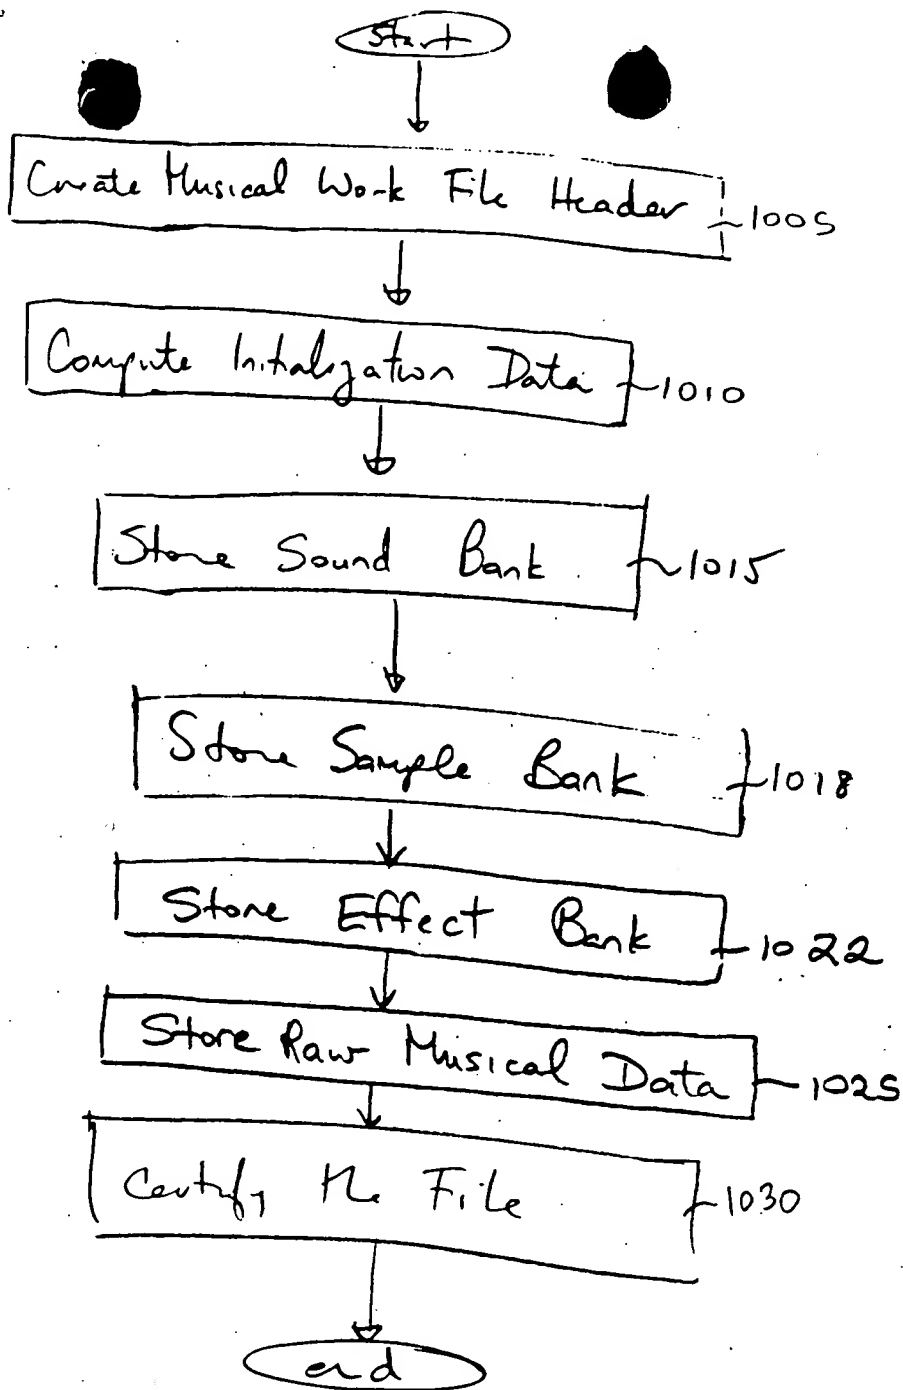 Start
Create Musical Work File Header 1005
Compute Initialization Data 1010
Store Sound Bank 1015
Store Sample Bank 1018
Store Effect Bank 1022
Store Raw Musical Data 1025
Certify the File 1030
end